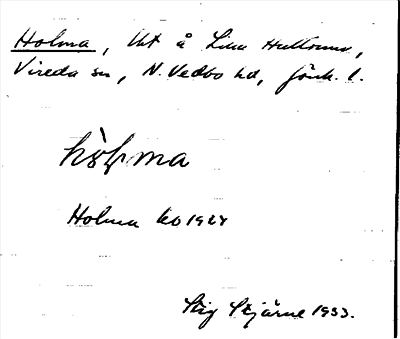 Holma, tkt å Lilla Hultrum,
Vireda sn, N. Vedbo hd, Jönk. l.
Holma ko 1927
Stig Stjärne 1933.